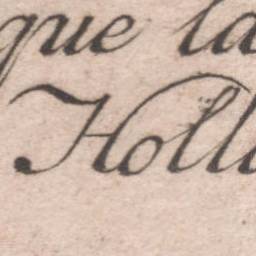 que la
Holl